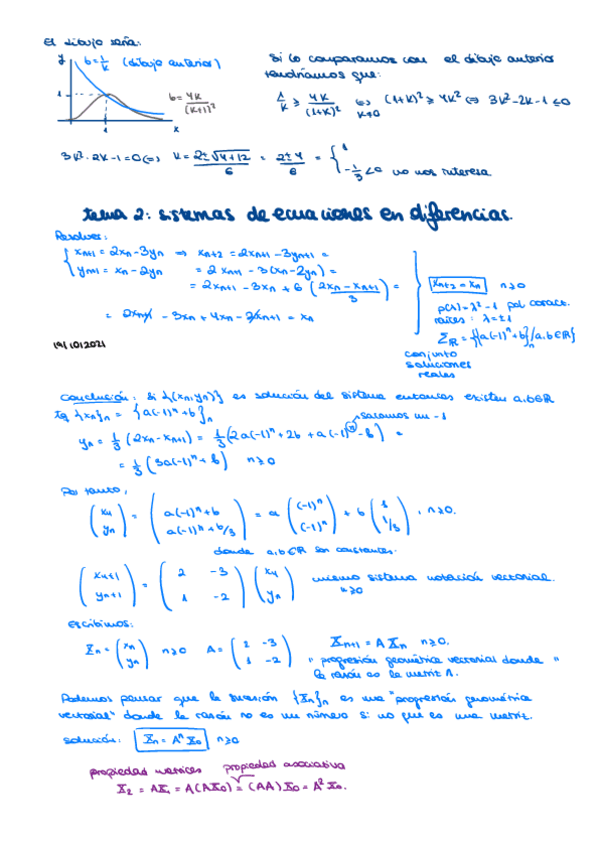 El dibujo sería:
y b = 1/k (dibujo anterior)
1
b = 4k/(k+1)²
1 x
Si lo comparamos con el dibujo anterior
tendríamos que:
1/k ≥ 4k/(1+k)² ⇔ k>0 (1+k)² ≥ 4k² ⇔ 3k²-2k-1 ≤ 0
3k²-2k-1=0 ⇔ k = (2±√(4+12))/6 = (2±4)/6 = { 1
-1/3 <0 no nos interesa
tema 2: sistemas de ecuaciones en diferencias.
Resolver:
{ xn+1 = 2xn - 3yn ⇒ xn+2 = 2xn+1 - 3yn+1 =
yn+1 = xn - 2yn = 2xn+1 - 3(xn-2yn) =
= 2xn+1 - 3xn + 6 ((2xn - xn+1)/3) =
= 2xn+1 - 3xn + 4xn - 2xn+1 = xn
xn+2 = xn n≥0
p(λ) = λ²-1 pol caract.
raíces: λ=±1
Σ_ℝ = {{a(-1)ⁿ+b}/a,b∈ℝ}
conjunto
soluciones
reales
19/10/2021
Conclusión: Si {(xn,yn)} es solución del sistema entonces existen a,b∈ℝ
tq {xn}n = {a(-1)ⁿ+b}n
sacamos un -1
yn = 1/3 (2xn - xn+1) = 1/3 (2a(-1)ⁿ + 2b + a(-1)ⁿ - b) =
= 1/3 (3a(-1)ⁿ + b) n≥0
Por tanto,
(xn yn) = (a(-1)ⁿ+b a(-1)ⁿ+b/3) = a ((-1)ⁿ (-1)ⁿ) + b (1 1/3), n≥0.
donde a,b∈ℝ son constantes.
(xn+1 yn+1) = (2 -3 1 -2) (xn yn) mismo sistema notación vectorial.
n≥0
Escribimos:
Xn = (xn yn) n≥0 A = (2 -3 1 -2) Xn+1 = A Xn n≥0.
"progresión geométrica vectorial donde"
la razón es la matriz A.
Podemos pensar que la sucesión {Xn}n es una "progresión geométrica
vectorial" donde la razón no es un número si no que es una matriz.
solución: Xn = Aⁿ X0 n≥0
propiedad matrices propiedad asociativa
X2 = AX1 = A(AX0) = (AA)X0 = A²X0.